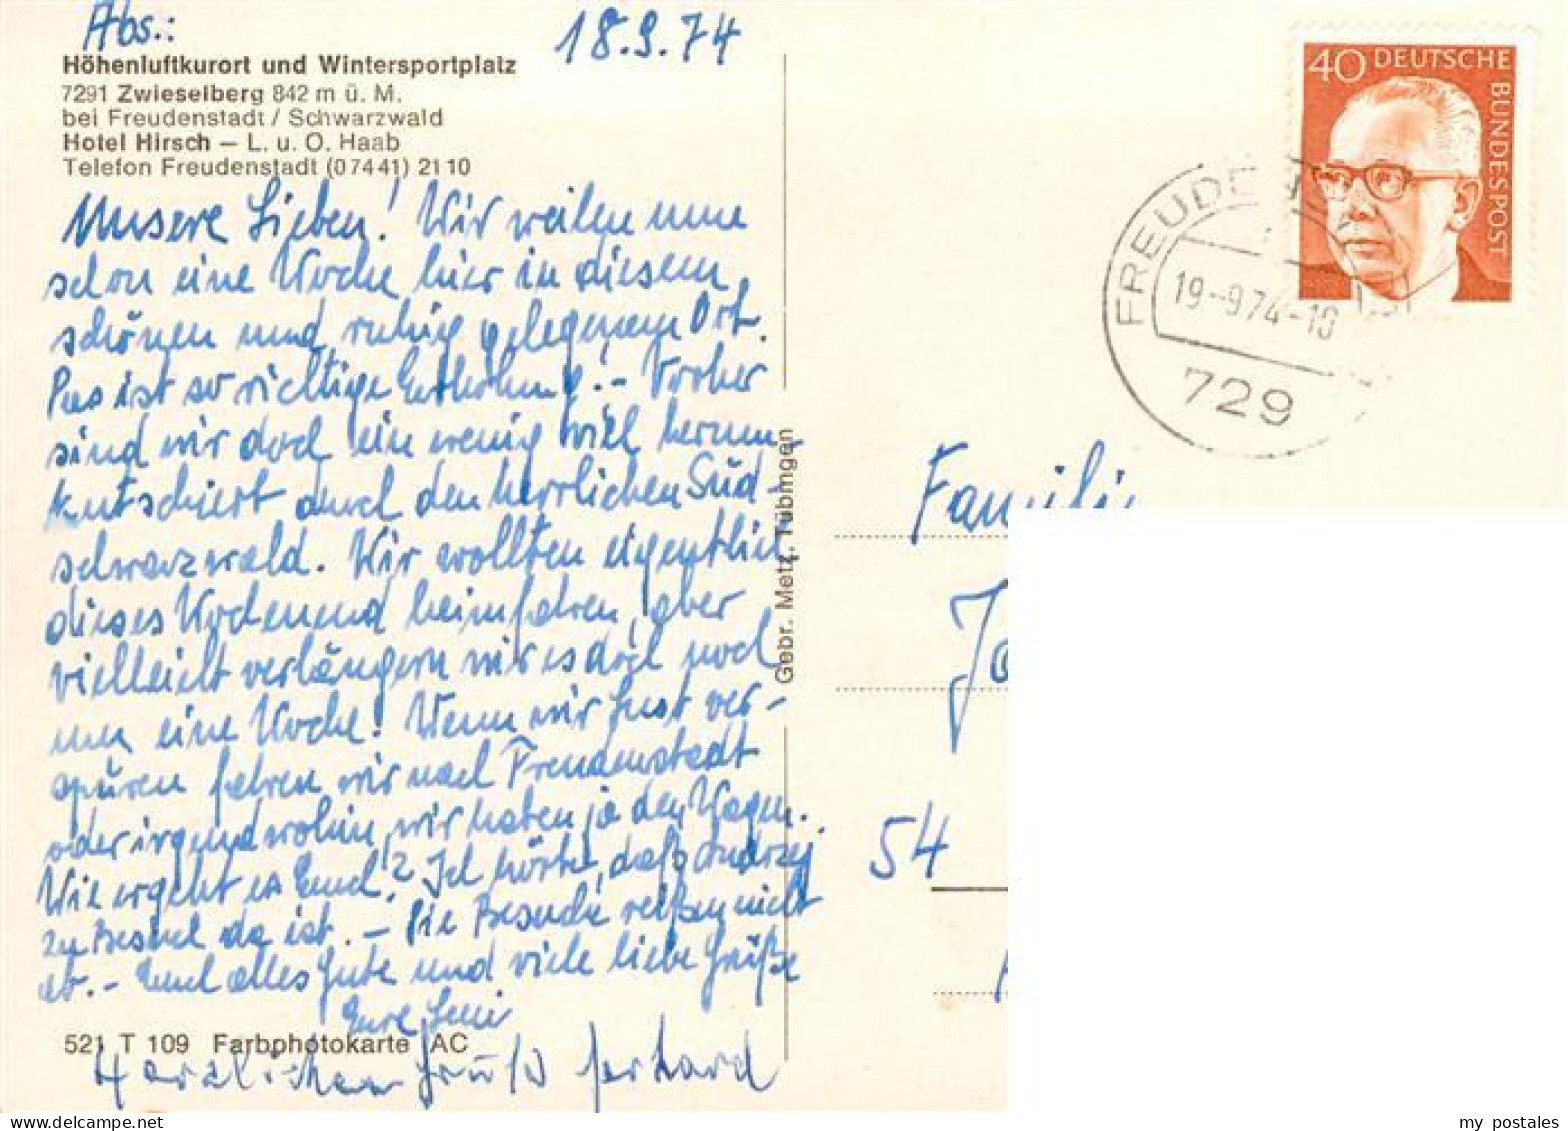 Abs.:
18.9.74
Höhenluftkurort und Wintersportplatz
7291 Zwieselberg 842 m ü. M.
bei Freudenstadt / Schwarzwald
Hotel Hirsch – L. u. O. Haab
Telefon Freudenstadt (07441) 2110
Unsere Lieben! Wir weilen nun
schon eine Woche hier in diesem
schönen und ruhig gelegenem Ort.
Das ist so richtige Erholung! – Vorher
sind wir doch ein wenig viel herum-
kutschiert durch den herrlichen Süd-
schwarzwald. Wir wollten eigentlich
dieses Wochenend heimfahren, aber
vielleicht verlängern wir es doch noch
um eine Woche! Wenn wir Lust ver-
spüren fahren wir nach Freudenstadt
oder irgendwohin, wir haben ja den Wagen.
Wie ergeht es Euch? Ich hörte, daß Andrzej
zu Besuch da ist. – Die Besuche reißen nicht
ab. – Euch alles Gute und viele liebe Grüße
Eure Leni
Herzlichen Gruß Gerhard
521 T 109 Farbphotokarte AC
Gebr. Metz, Tübingen
40 DEUTSCHE
BUNDESPOST
FREUDE
19-9.74-18
729
Famili
Jo
54
my postales